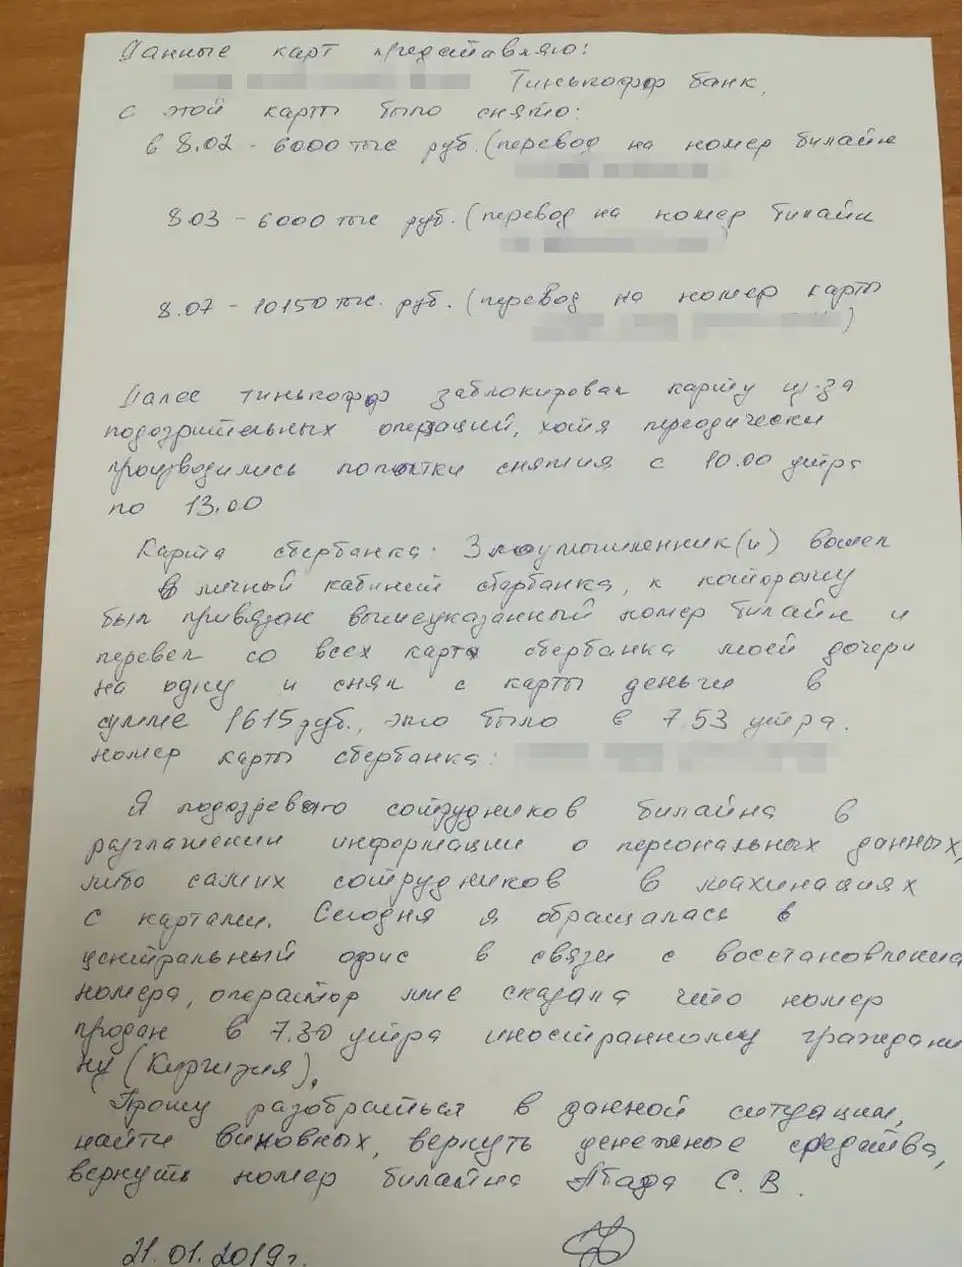 Данные карт предоставляю:
Тинькофф банк,
с этой карты было снято:
в 8.02 - 6000 тыс руб. (перевод на номер билайн
)
8.03 - 6000 тыс руб. (перевод на номер билайн
)
8.07 - 10150 тыс. руб. (перевод на номер карты
)
Далее тинькофф заблокировал карту из-за
подозрительных операций, хотя периодически
производились попытки снятия с 10.00 утра
по 13.00
Карта сбербанка: Злоумышленник(и) вошел
в личный кабинет сбербанка, к которому
был привязан вышеуказанный номер билайн и
перевел со всех карт сбербанка моей дочери
на одну и снял с карты деньги в
сумме 1615 руб., это было в 7.53 утра.
номер карты сбербанка:
Я подозреваю сотрудников билайна в
разглашении информации о персональных данных,
либо самих сотрудников в махинациях
с картами. Сегодня я обращалась в
центральный офис в связи с восстановление
номера, оператор мне сказала что номер
продан в 7.30 утра иностранному граждани
ну (Киргизия).
Прошу разобраться в данной ситуации,
найти виновных, вернуть денежные средства,
вернуть номер билайна С. В.
21.01.2019г.